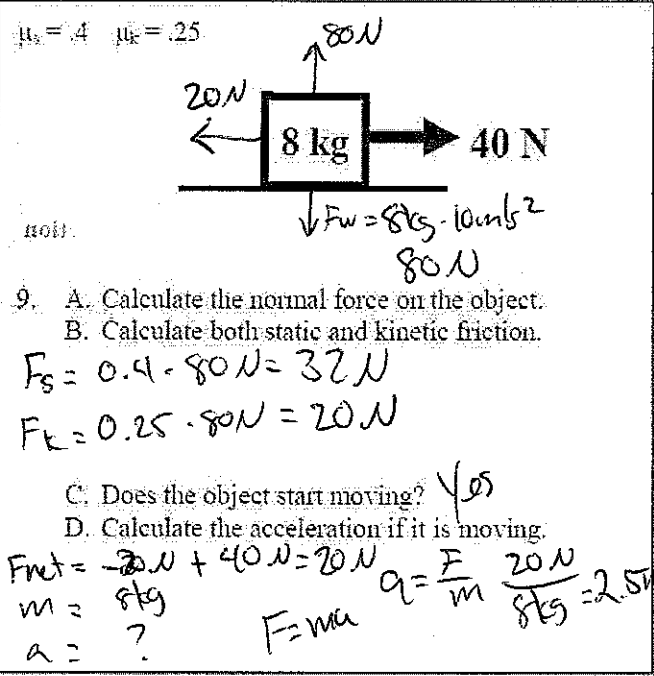 μs = .4 μk = .25
80N
20N
8 kg
40 N
Fw = 8kg · 10m/s²
80N
9. A. Calculate the normal force on the object.
B. Calculate both static and kinetic friction.
Fs = 0.4 · 80N = 32N
Fk = 0.25 · 80N = 20N
C. Does the object start moving? Yes
D. Calculate the acceleration if it is moving.
Fnet = -20N + 40N = 20N
m = 8kg
a = ?
F = ma
a = F/m 20N/8kg = 2.5